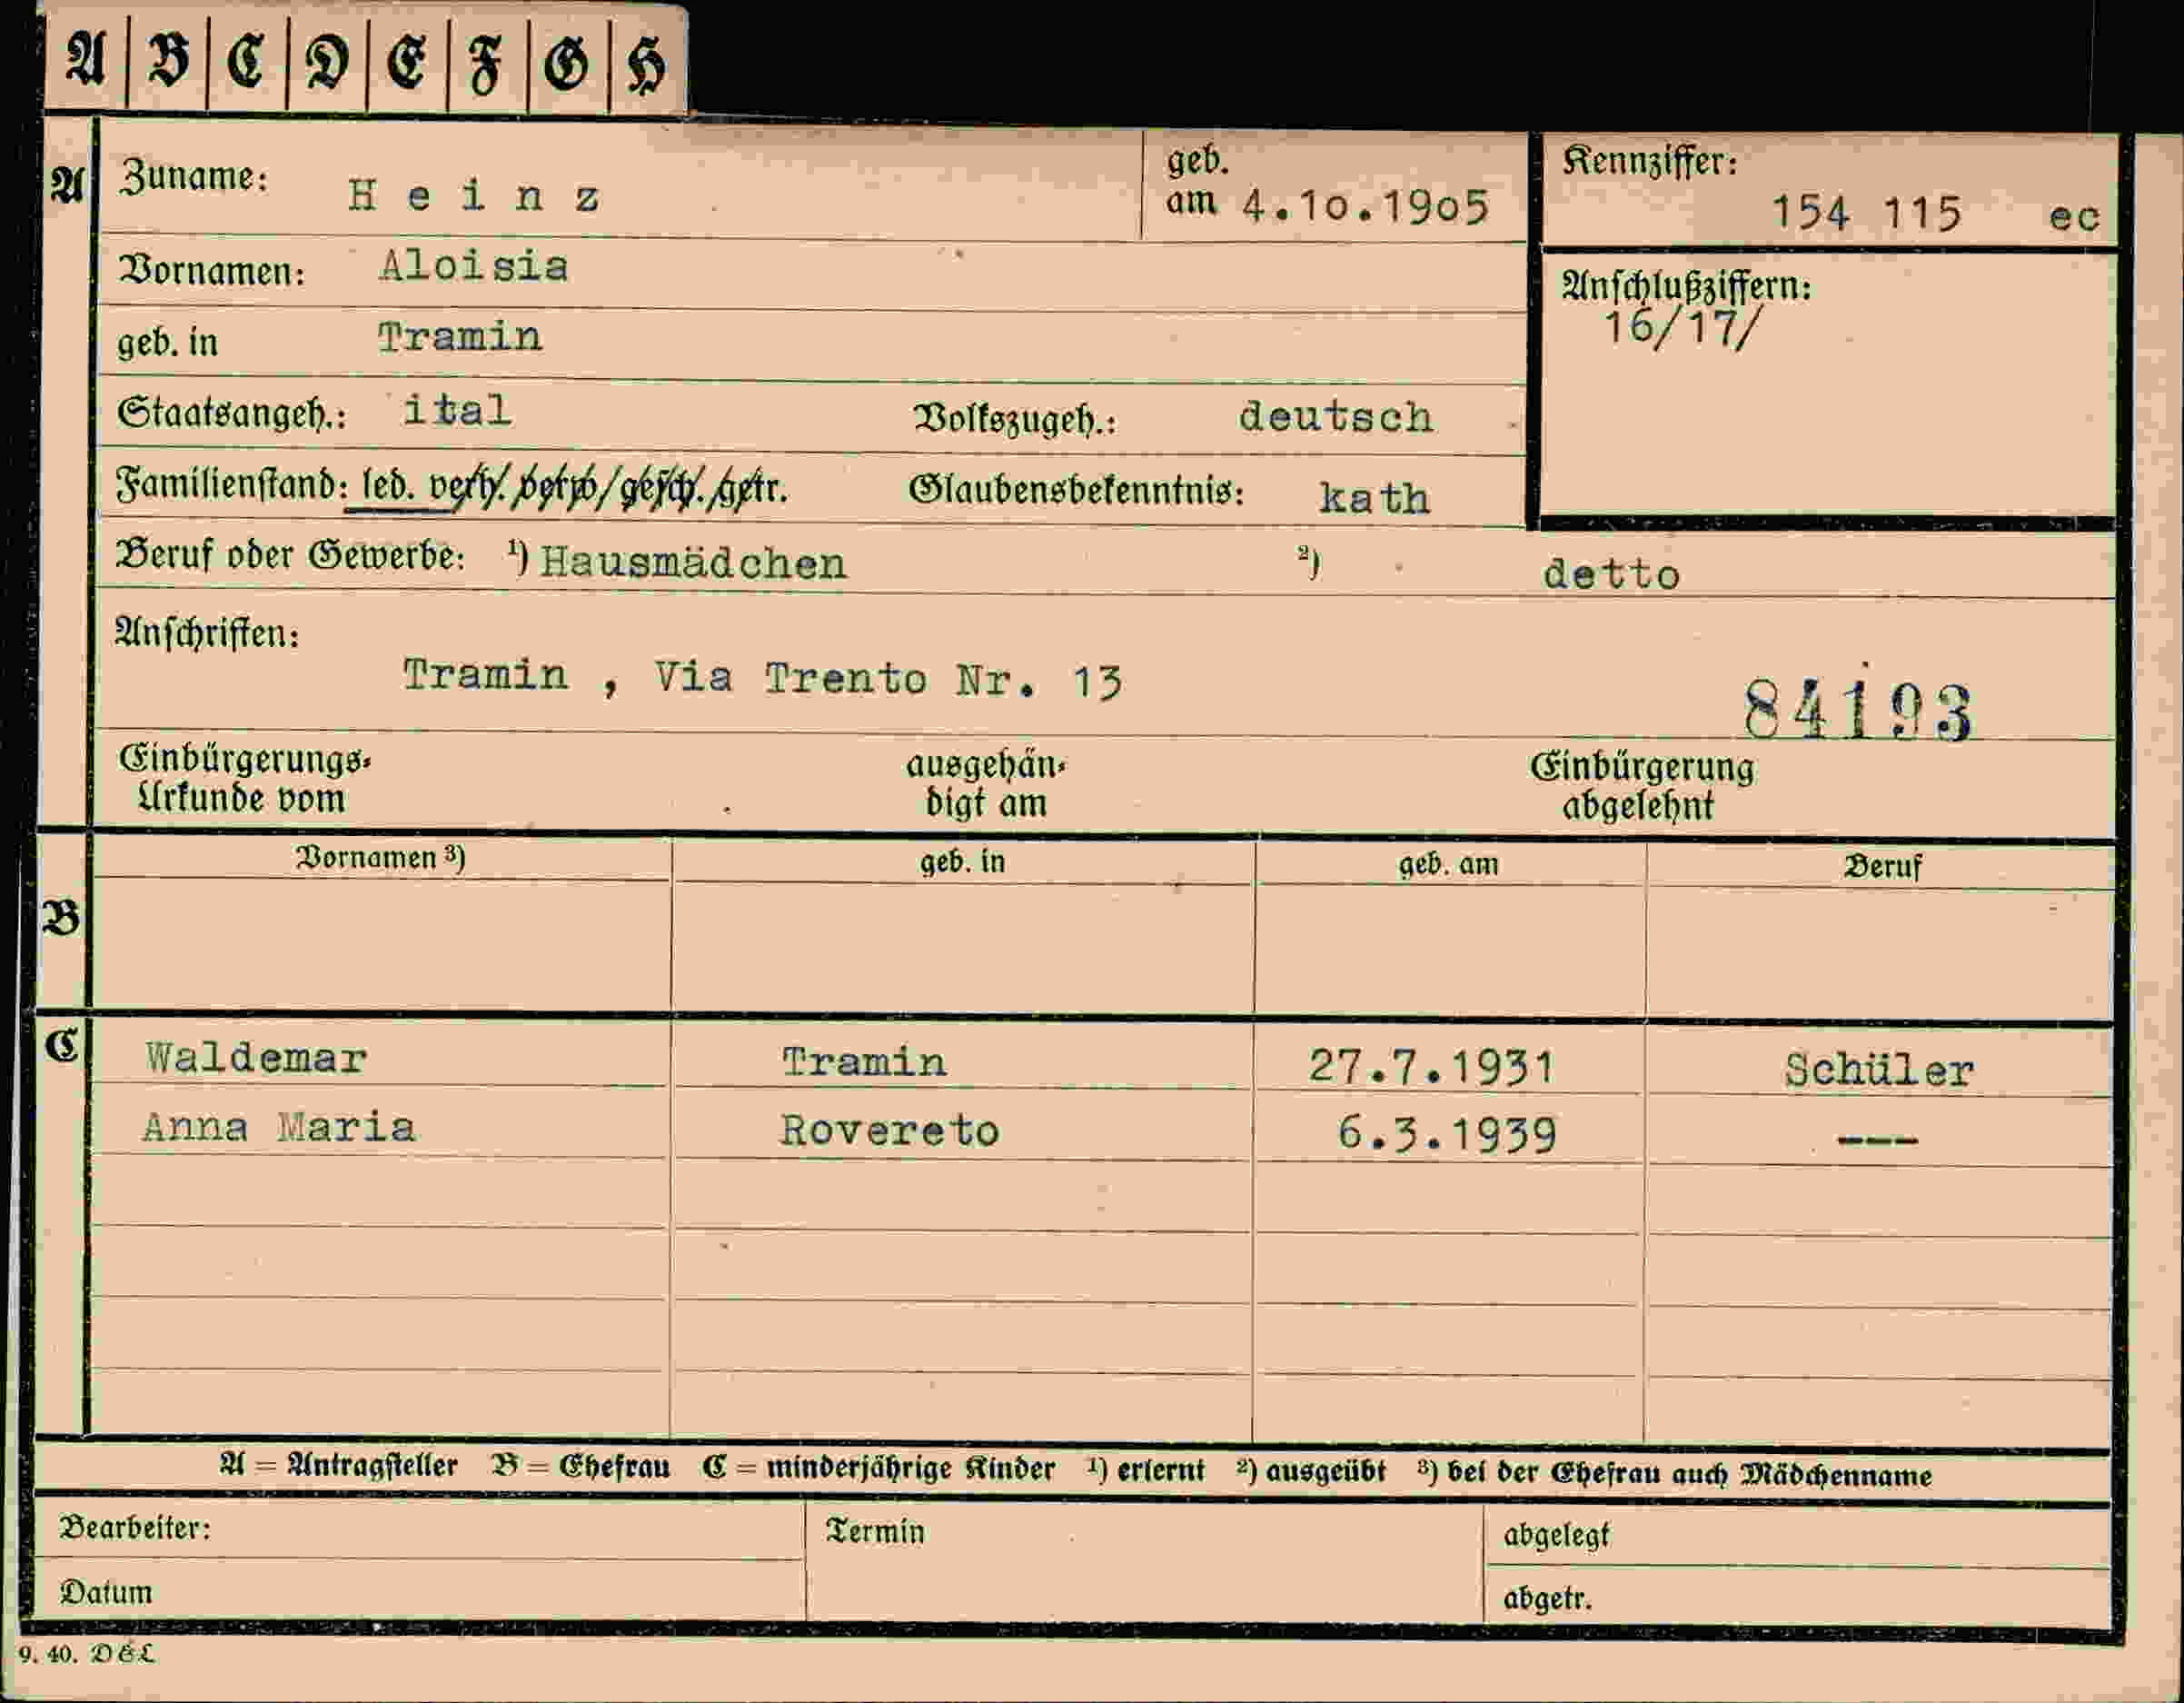 A B C D E F G H
A Zuname: Heinz geb. am 4.10.1905 Kennziffer: 154 115 ec
Vornamen: Aloisia Anschlußziffern:
16/17/
geb. in Tramin
Staatsangeh.: ital Volkszugeh.: deutsch
Familienstand: led. verh. verw/gesch. getr. Glaubensbekenntnis: kath
Beruf oder Gewerbe: ¹) Hausmädchen ²) detto
Anschriften:
Tramin , Via Trento Nr. 13
84193
Einbürgerungs- ausgehän- Einbürgerung
Urkunde vom digt am abgelehnt
B Vornamen ³) geb. in geb. am Beruf
C Waldemar Tramin 27.7.1931 Schüler
Anna Maria Rovereto 6.3.1939 ---
A = Antragsteller B = Ehefrau C = minderjährige Kinder ¹) erlernt ²) ausgeübt ³) bei der Ehefrau auch Mädchenname
Bearbeiter: Termin abgelegt
Datum abgetr.
9. 40. DEL